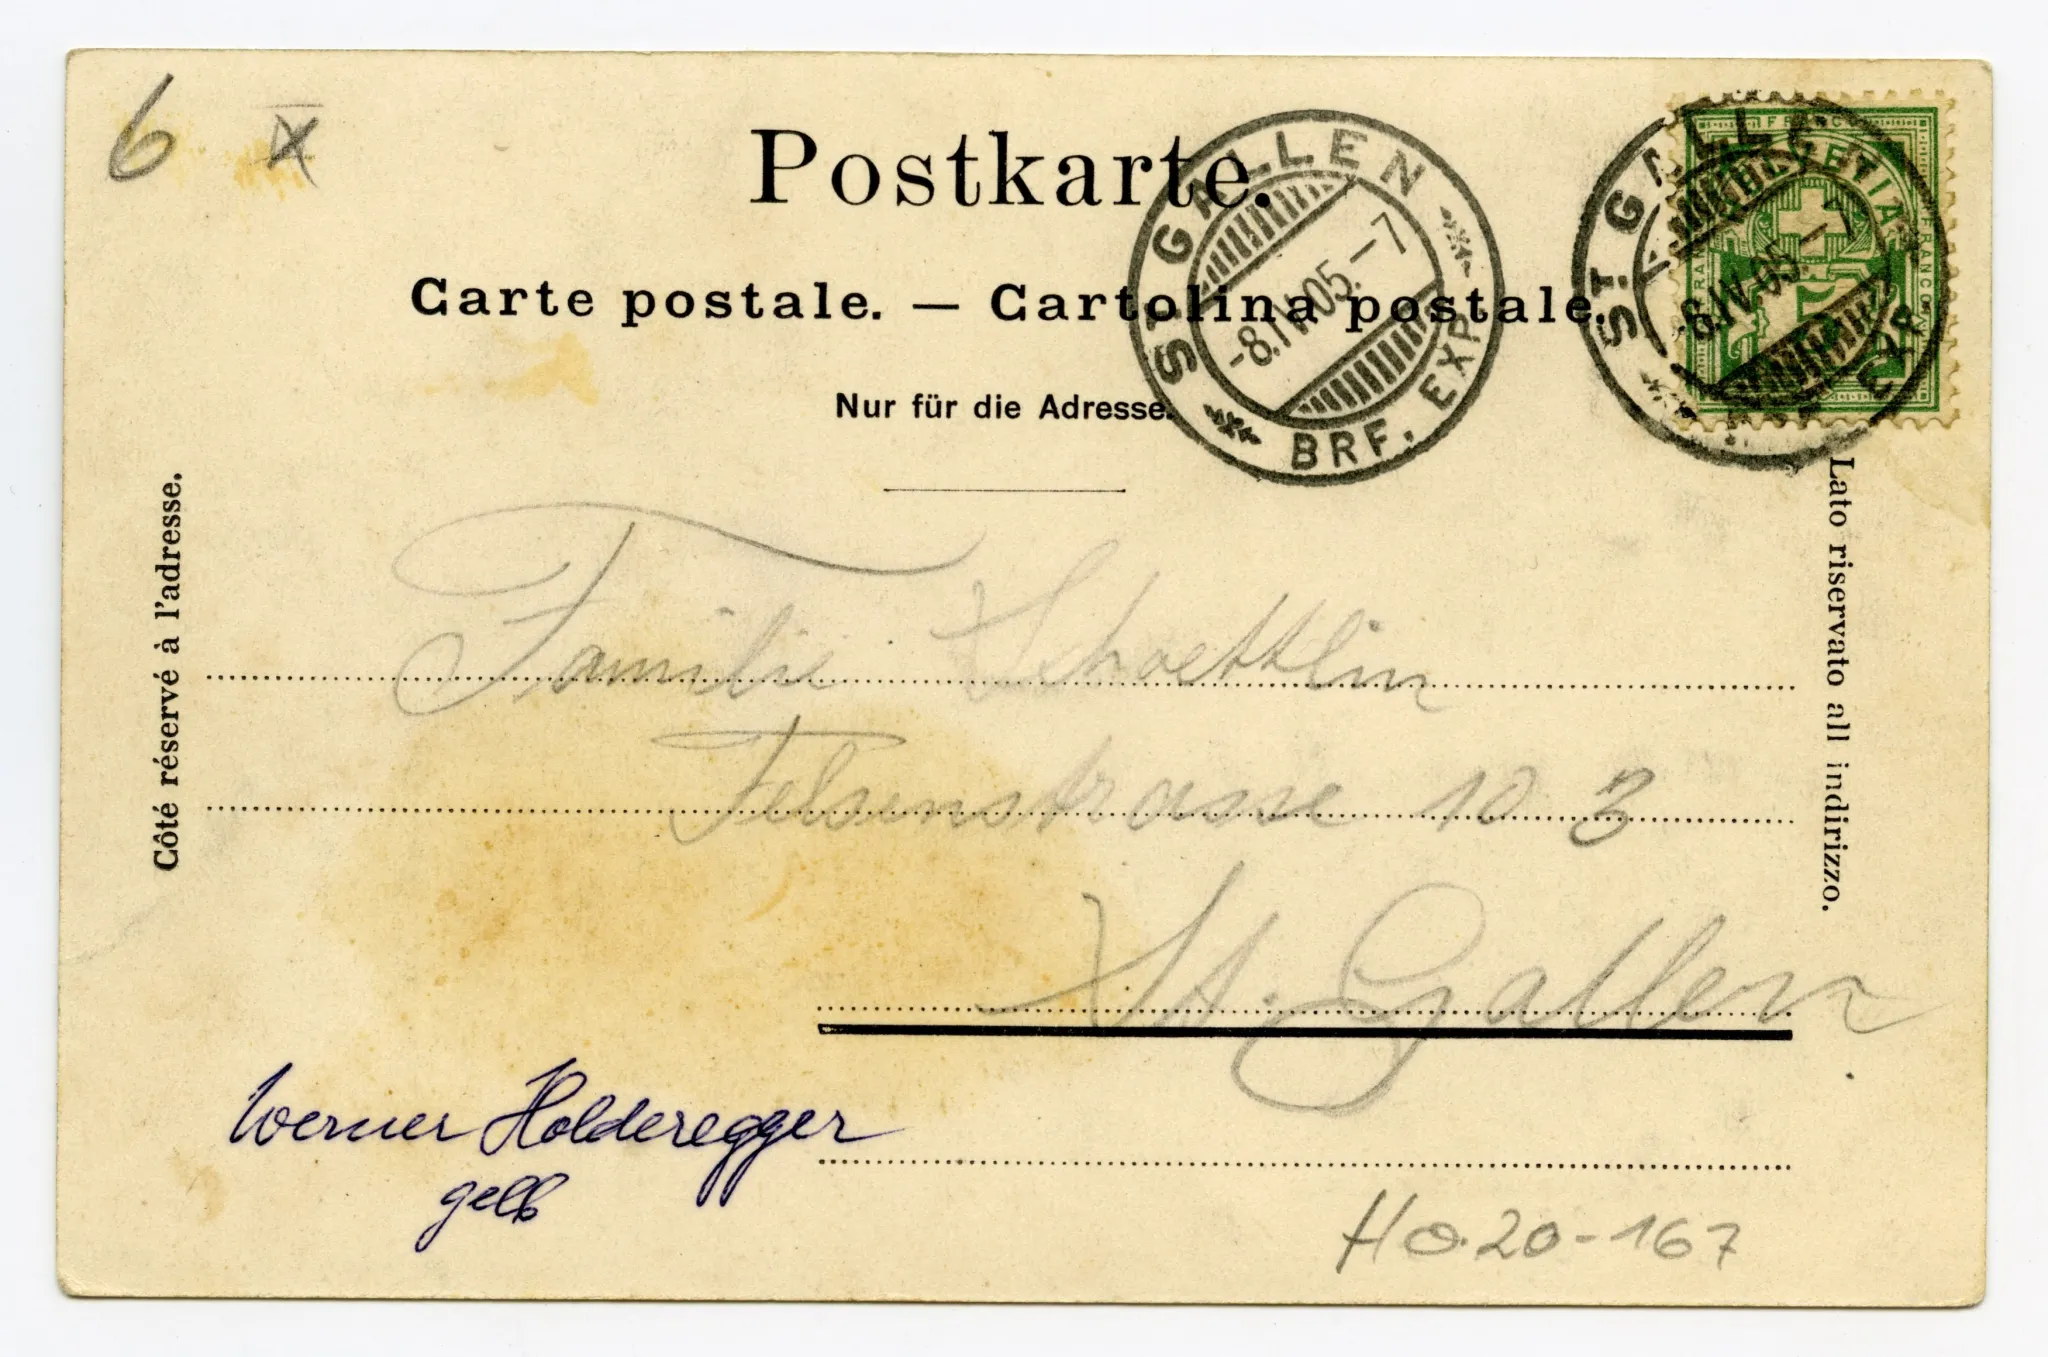 6 X
Postkarte.
Carte postale. — Cartolina postale.
Nur für die Adresse.
ST. GALLEN
-8.IV.05.-7
BRF. EXP.
ST. GALLEN
-8.IV.05.-7
EXP.
HELVETIA
FRANCO
FRANCO
Côté réservé à l'adresse.
Lato riservato all indirizzo.
Familie Schoettlin
Felsenstrasse 10 3
St. Gallen
Werner Holderegger
gelb
Ho.20-167